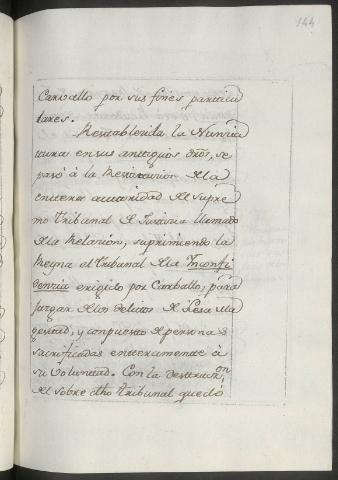 144
Carvallo por sus fines particu
lares.
Restablecida la Nuncia
tura en sus antiguos dros, se
pasó à la Restitucion de la
entera autoridad al supre
mo tribunal de Justicia llamado
de la Relacion, suprimiendo la
Reyna el tribunal de la Inconfi
dencia erigido por Carvallo, para
juzgar de los Delitos de Lesa Ma
gestad, y compuesto de personas
sacrificadas enteramente à
su Voluntad. Con la destruzon,
del sobre dho tribunal quedó